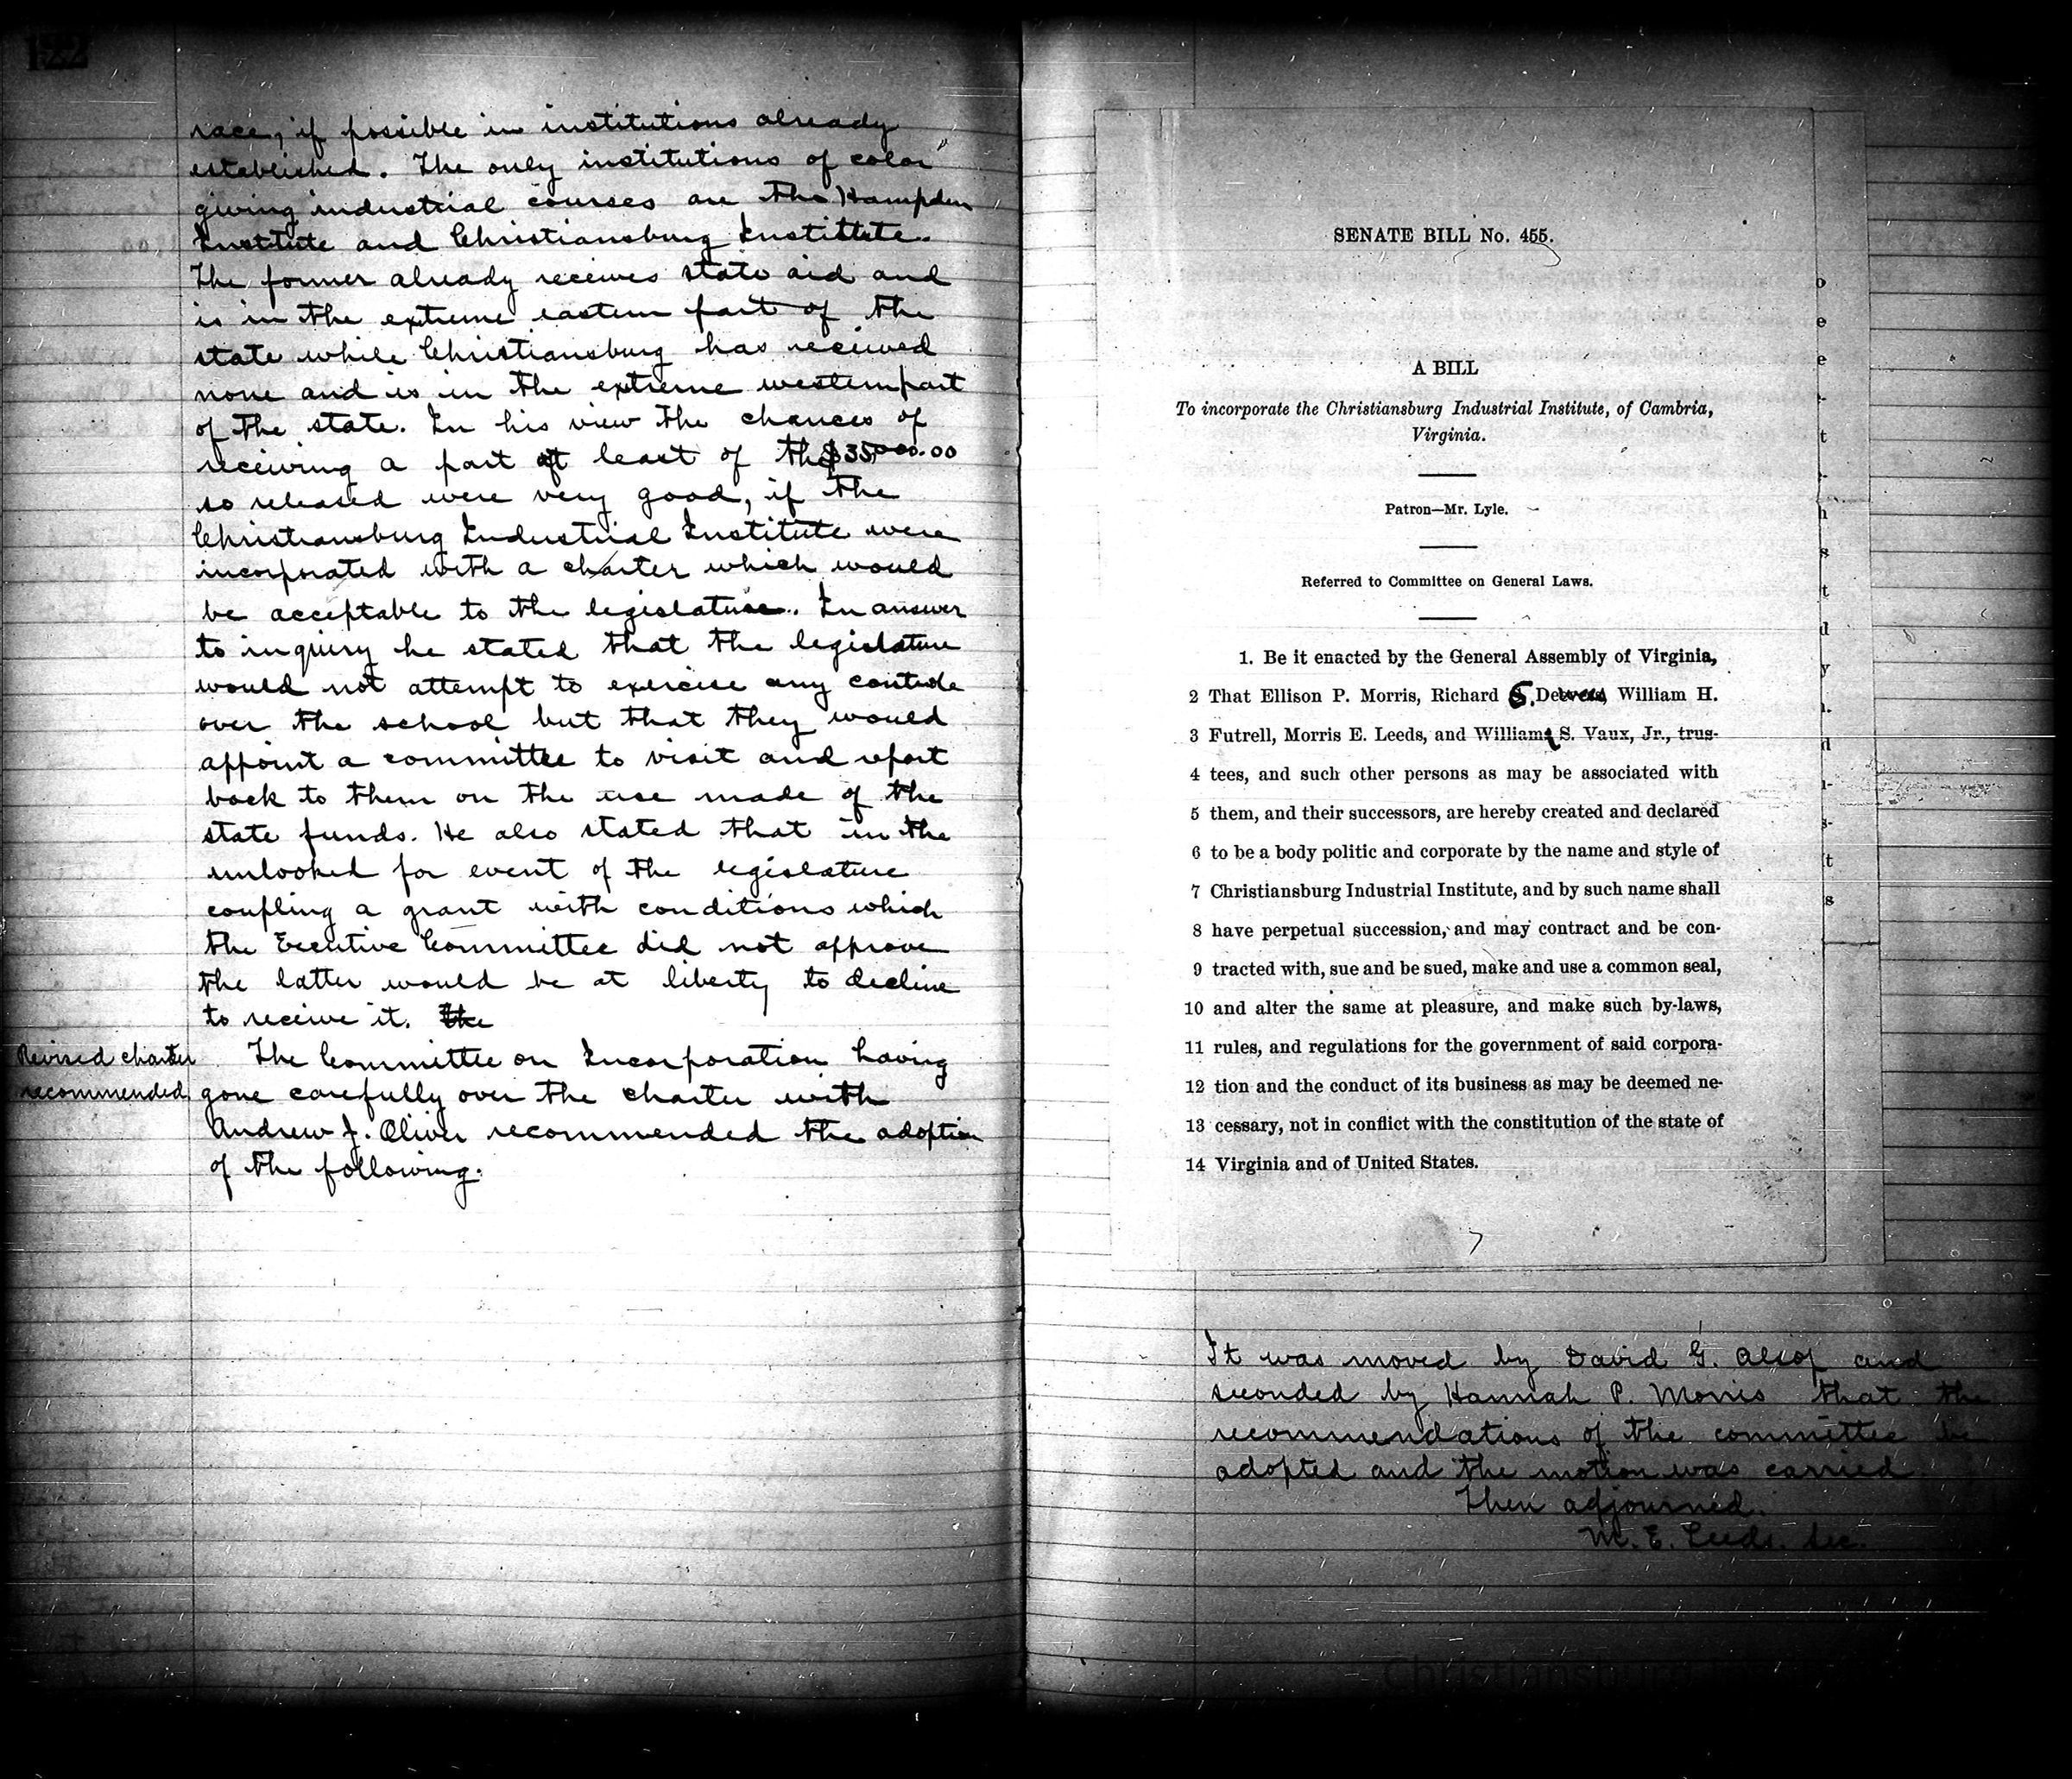 122
race, if possible in institutions already
established. The only institutions of color
giving industrial courses are the Hampden
Institute and Christiansburg Institute.
The former already receives state aid and
is in the extreme eastern part of the
state while Christiansburg has received
none and is in the extreme western part
of the state. In his view the chances of
receiving a part at least of the $35,000.00
so released were very good, if the
Christiansburg Industrial Institute were
incorporated with a charter which would
be acceptable to the legislature. In answer
to inquiry he stated that the legislature
would not attempt to exercise any controle
over the school but that they would
appoint a committee to visit and report
back to them on the use made of the
state funds. He also stated that in the
unlooked for event of the legislature
coupling a grant with conditions which
the Executive Committee did not approve
the latter would be at liberty to decline
to receive it. The
Revised charter
recommended
The Committee on Incorporation having
gone carefully over the charter with
Andrew J. Oliver recommended the adoption
of the following.
SENATE BILL No. 455.
A BILL
To incorporate the Christiansburg Industrial Institute, of Cambria,
Virginia.
Patron—Mr. Lyle.
Referred to Committee on General Laws.
1. Be it enacted by the General Assembly of Virginia,
2 That Ellison P. Morris, Richard S. William H.
3 Futrell, Morris E. Leeds, and William S. Vaux, Jr., trus-
4 tees, and such other persons as may be associated with
5 them, and their successors, are hereby created and declared
6 to be a body politic and corporate by the name and style of
7 Christiansburg Industrial Institute, and by such name shall
8 have perpetual succession, and may contract and be con-
9 tracted with, sue and be sued, make and use a common seal,
10 and alter the same at pleasure, and make such by-laws,
11 rules, and regulations for the government of said corpora-
12 tion and the conduct of its business as may be deemed ne-
13 cessary, not in conflict with the constitution of the state of
14 Virginia and of United States.
It was moved by David G. Alsop and
seconded by Hannah P. Morris that the
recommendations of the committee be
adopted and the motion was carried
Then adjourned.
M. E. Leeds. Sec.